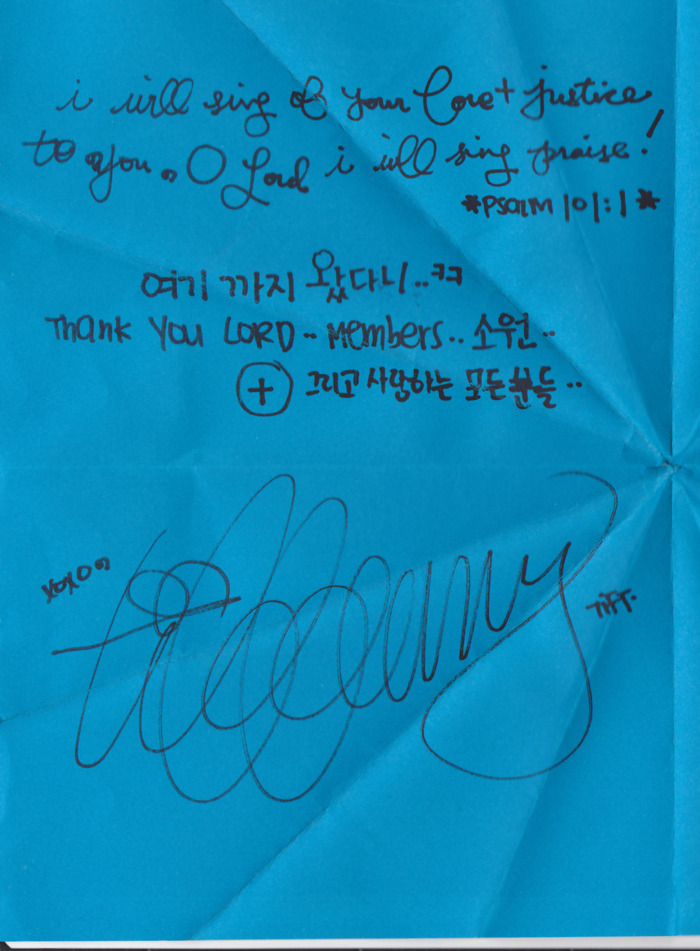 i will sing of your love + justice
to you. O Lord i will sing praise!
*PSalM 101:1*
여기 까지 왔다니..ㅋㅋ
Thank You LORD.. Members.. 소원..
+ 그리고 사랑하는 모든분들..
xoxo.
tiffany
TIFF.